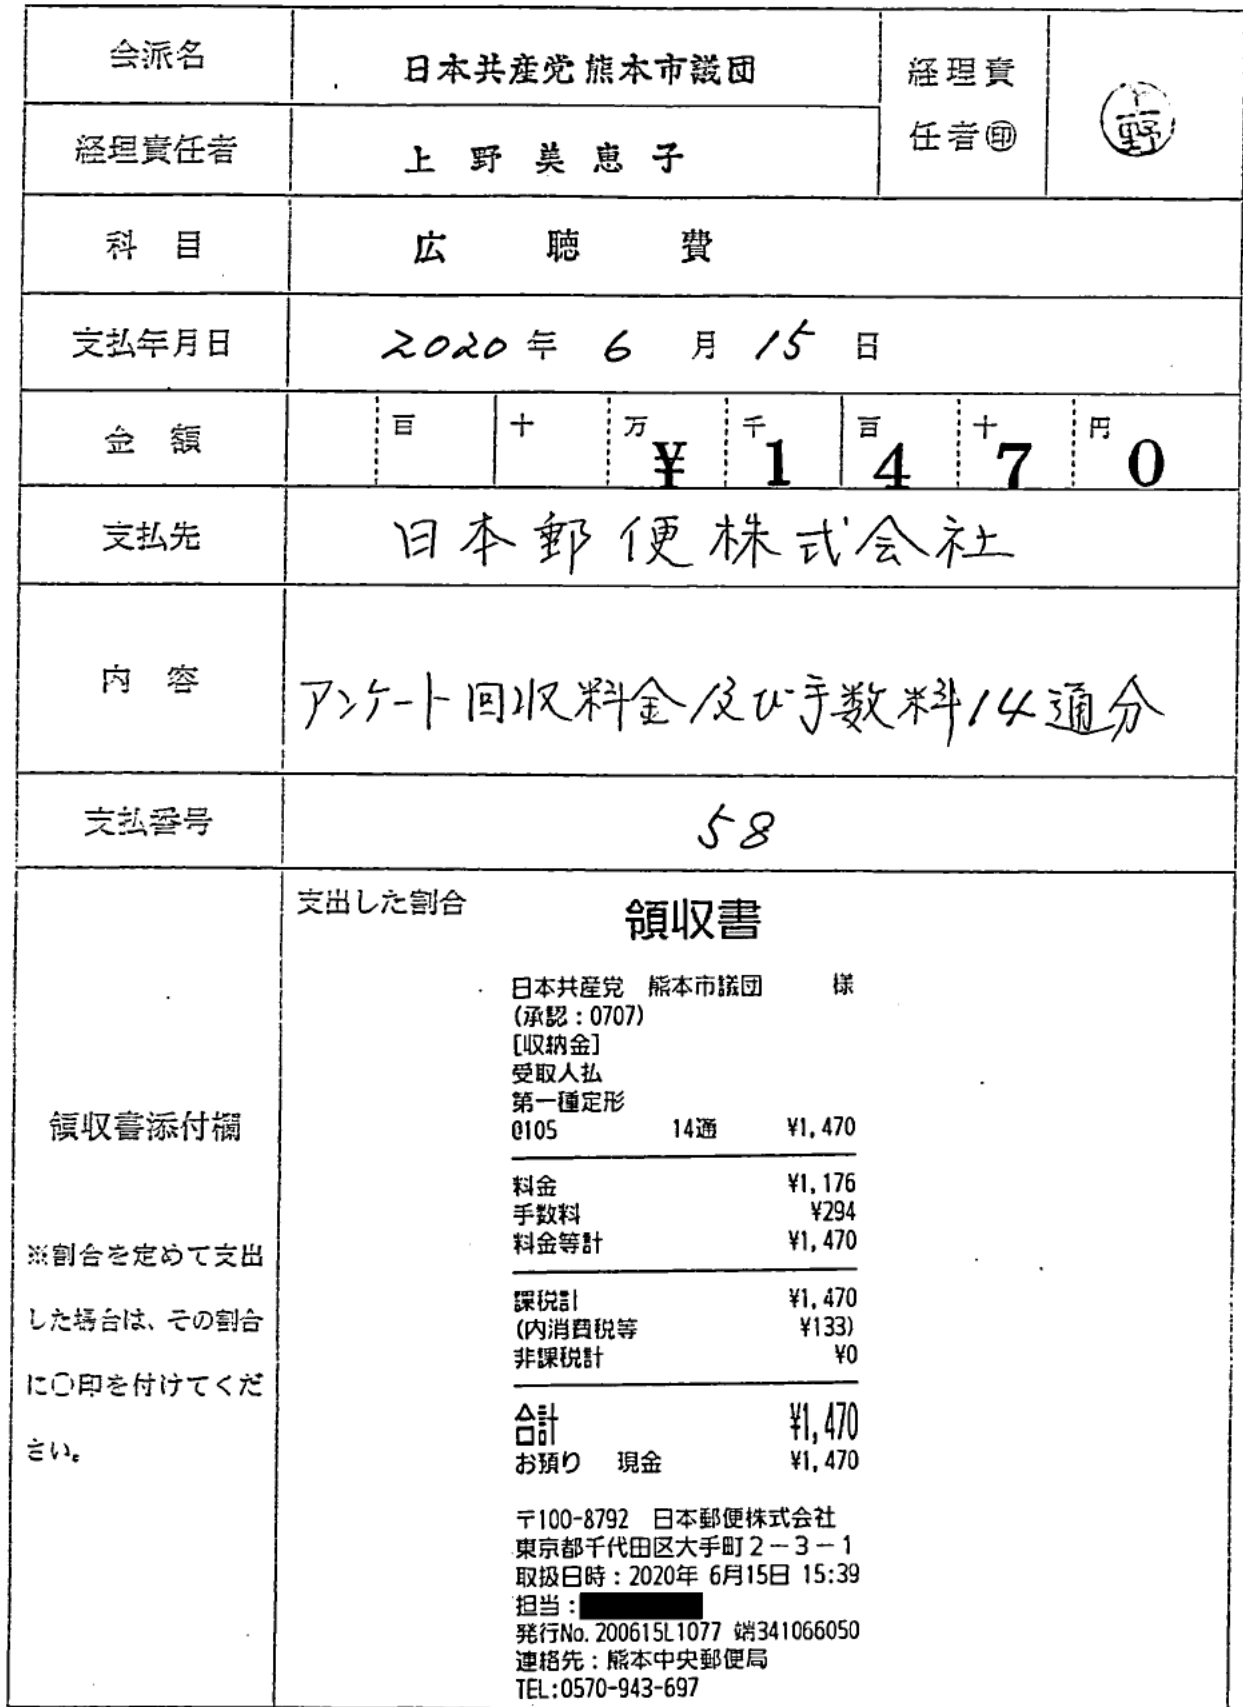 会派名 日本共産党熊本市議団 経理責任者㊞ 上野
経理責任者 上野美恵子
科目 広聴費
支払年月日 2020年6月15日
金額 百 十 万 千 百 十 円
¥1470
支払先 日本郵便株式会社
内容 アンケート回収料金及び手数料14通分
支払番号 58
領収書添付欄
※割合を定めて支出
した場合は、その割合
に〇印を付けてくだ
さい。
支出した割合
領収書
日本共産党 熊本市議団 様
(承認:0707)
[収納金]
受取人払
第一種定形
@105 14通 ¥1,470
料金 ¥1,176
手数料 ¥294
料金等計 ¥1,470
課税計 ¥1,470
(内消費税等 ¥133)
非課税計 ¥0
合計 ¥1,470
お預り 現金 ¥1,470
〒100-8792 日本郵便株式会社
東京都千代田区大手町2-3-1
取扱日時:2020年 6月15日 15:39
担当:
発行No.200615L1077 端341066050
連絡先:熊本中央郵便局
TEL:0570-943-697